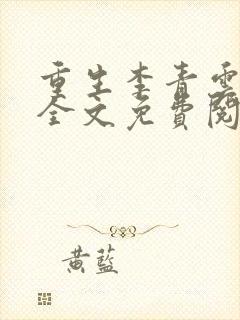 重生李青雲
全文免費閱
黃藍